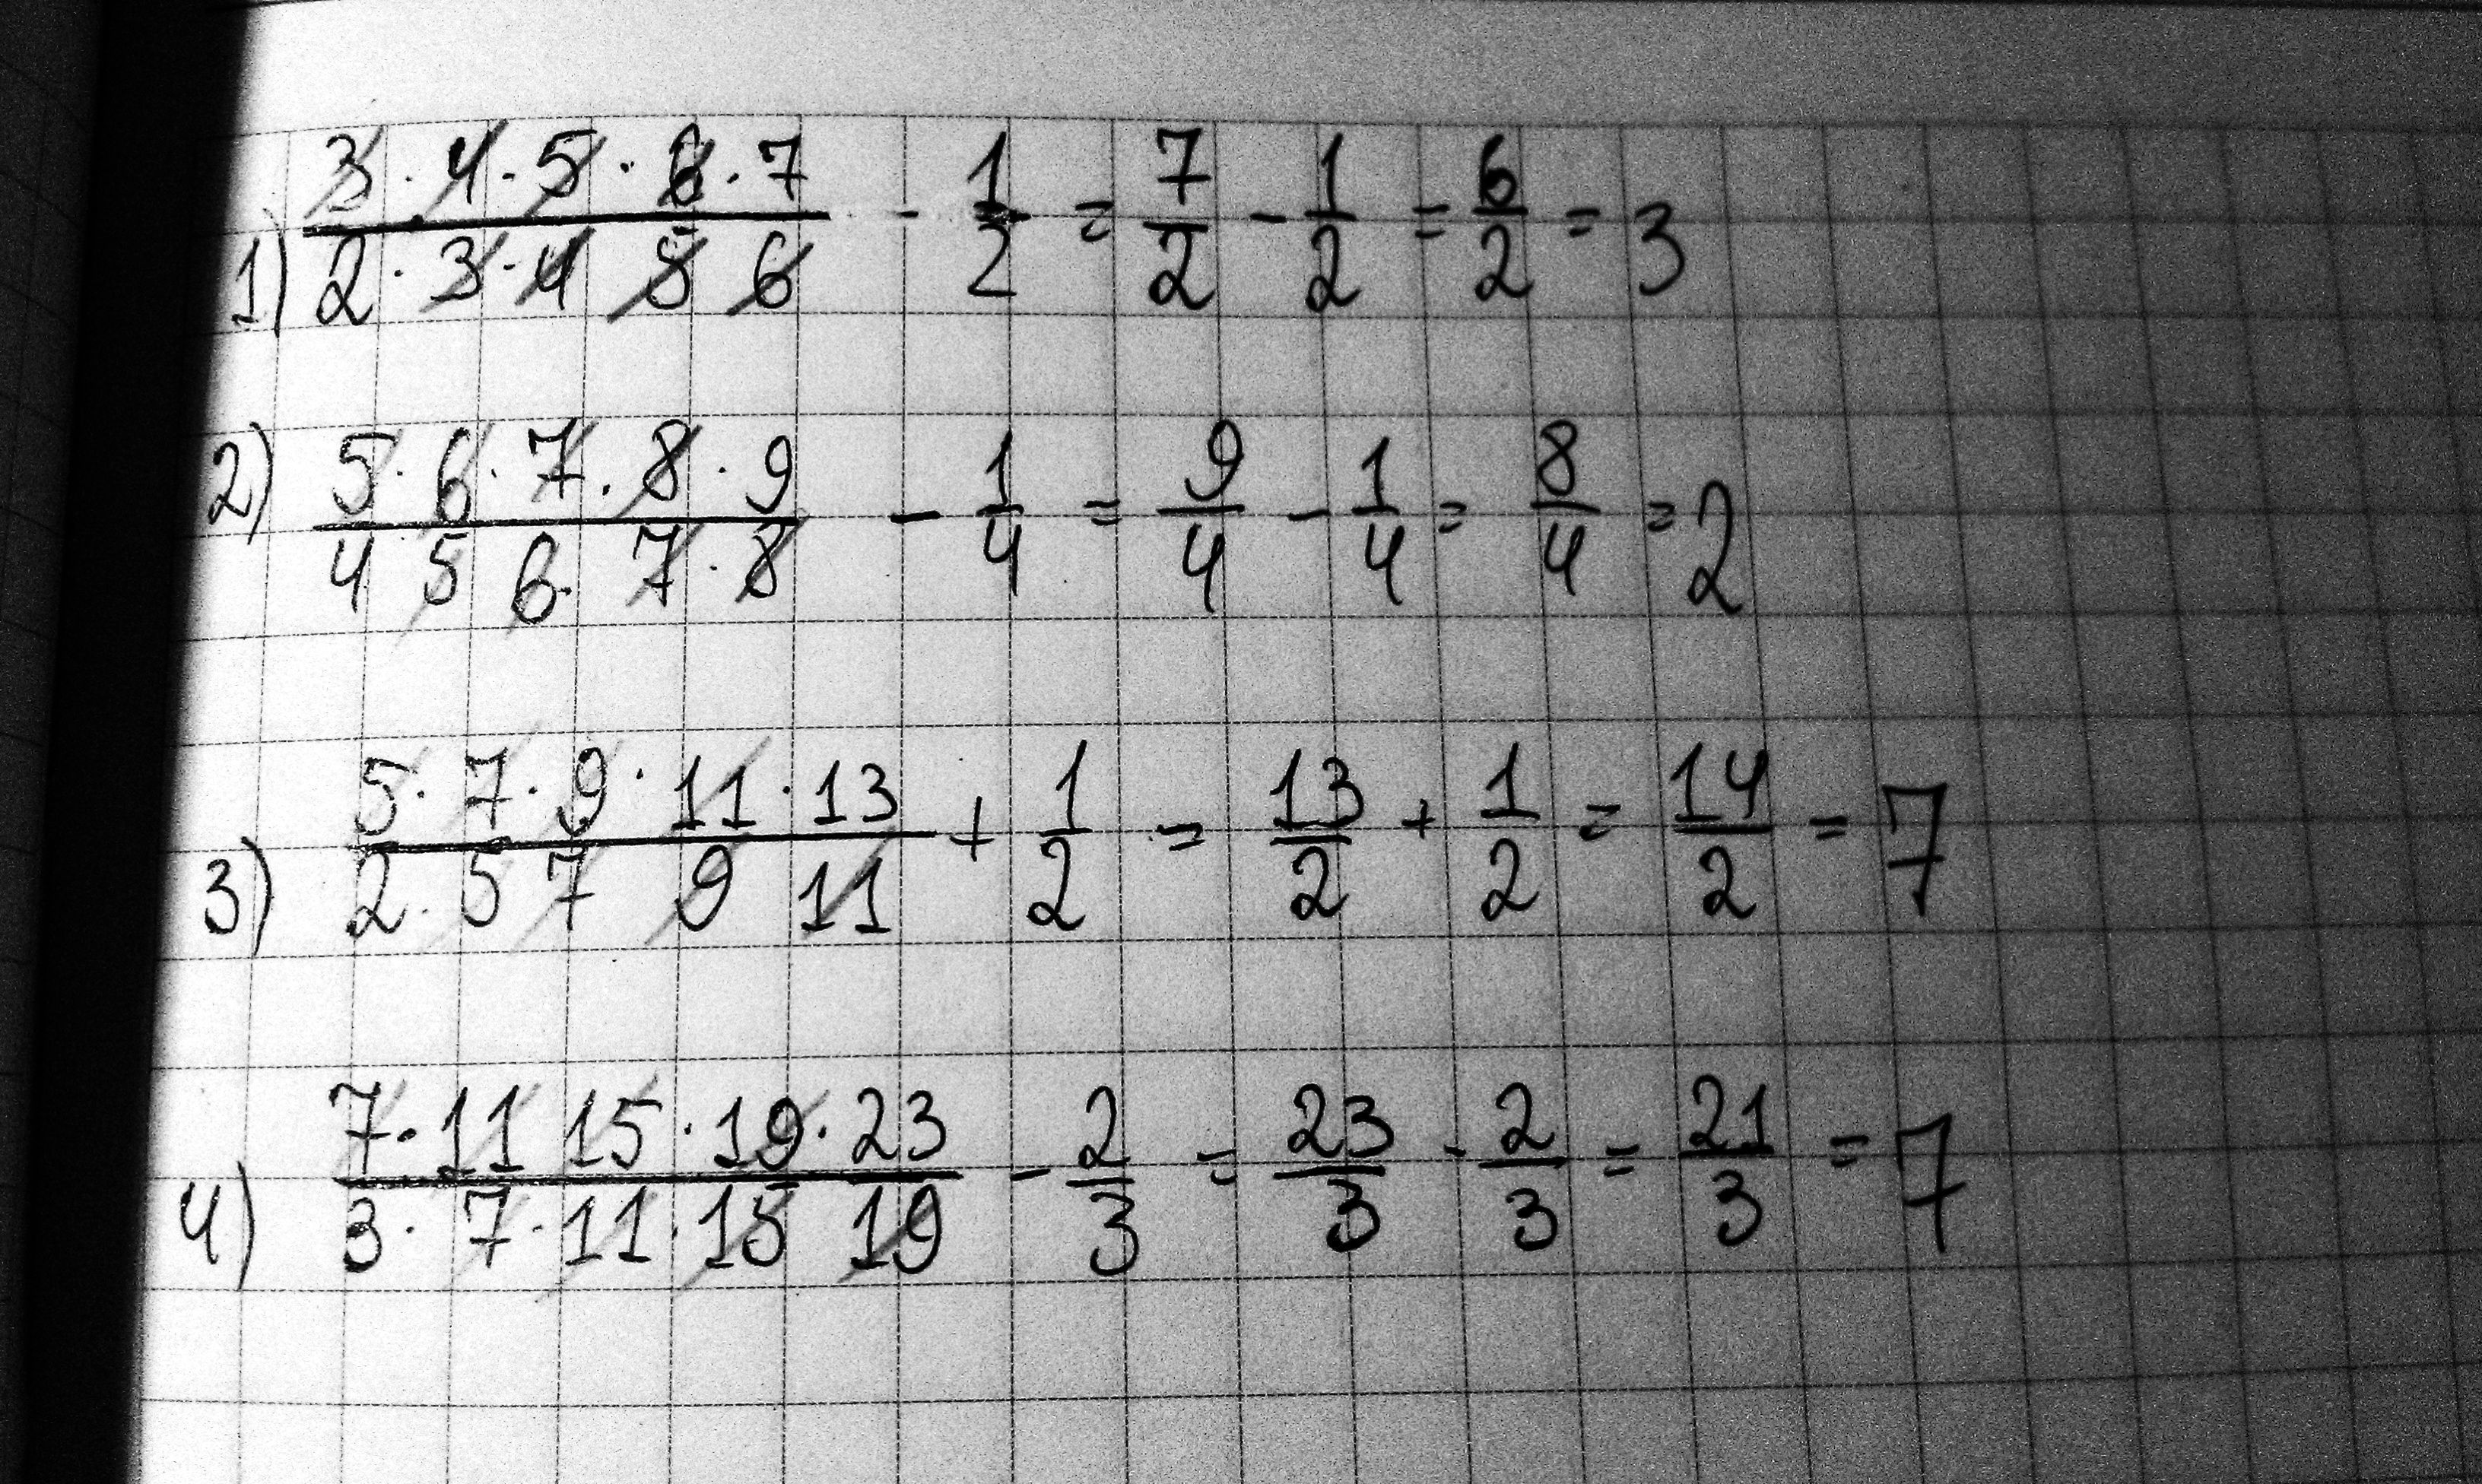 1) 3 · 4 · 5 · 6 · 7 / 2 · 3 · 4 5 6 - 1/2 = 7/2 - 1/2 = 6/2 = 3
2) 5 · 6 · 7 · 8 · 9 / 4 5 6 · 7 · 8 - 1/4 = 9/4 - 1/4 = 8/4 = 2
3) 5 · 7 · 9 · 11 · 13 / 2 · 5 7 9 11 + 1/2 = 13/2 + 1/2 = 14/2 = 7
4) 7 · 11 15 · 19 · 23 / 3 · 7 · 11 · 15 19 - 2/3 = 23/3 - 2/3 = 21/3 = 7